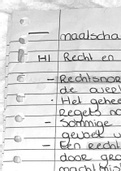 maatscha
H1 Recht en
- Rechtsnor
de over
· Het gehee
regels no
- Sommige
gevoel u
- Een recht
door gro